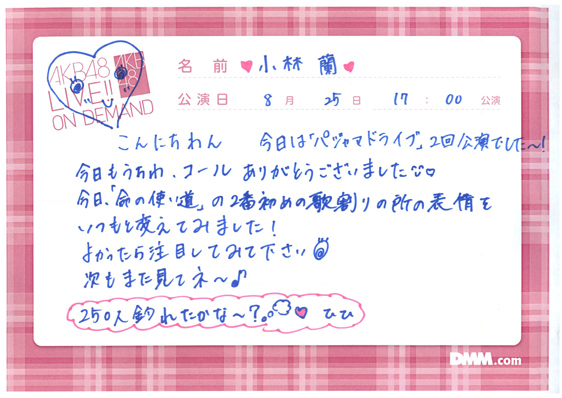 AKB48
LIVE!!
ON DEMAND
AKB
48
名 前 ♥小林 蘭♥
公演日 8月 25日 17:00 公演
こんにちわん 今日は「パジャマドライブ」2回公演でした〜!
今日もうちわ、コール ありがとうございました♡
今日、「命の使い道」の2番初めの歌割りの所の表情を
いつもと変えてみました!
よかったら注目してみて下さい
次もまた見てネ〜♪
250人釣れたかな〜?。♥ ひひ
DMM.com